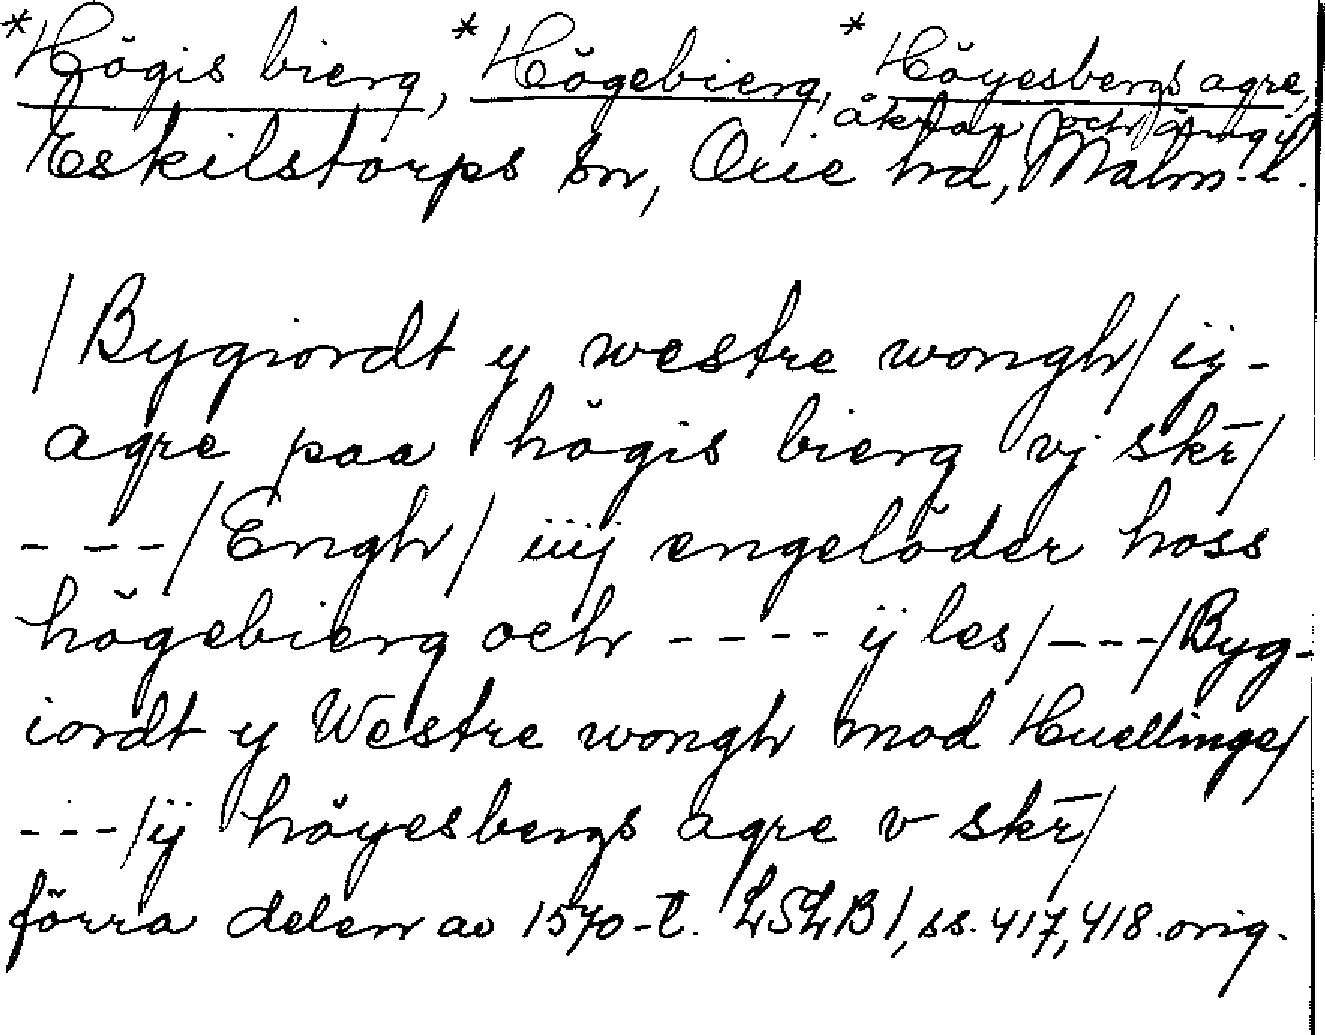 *Högis bierg, *Högebierg, *Höyesbergs agre,
åkrar och äng i
Eskilstorps sn, Oxie hd, Malm. l.
/Bygiordt y westre wongh/ ij-
agre paa högis bierg vj skr̄/
- - -/Engh/ iiij engelöder hoss
högebierg och - - - - ij les/ - - -/Byg-
iordt y Westre wongh mod Huellinge/
- - -/ij höyesbergs agre v skr̄/
förra delen av 1570-t. LSLB I, ss. 417, 418. orig.